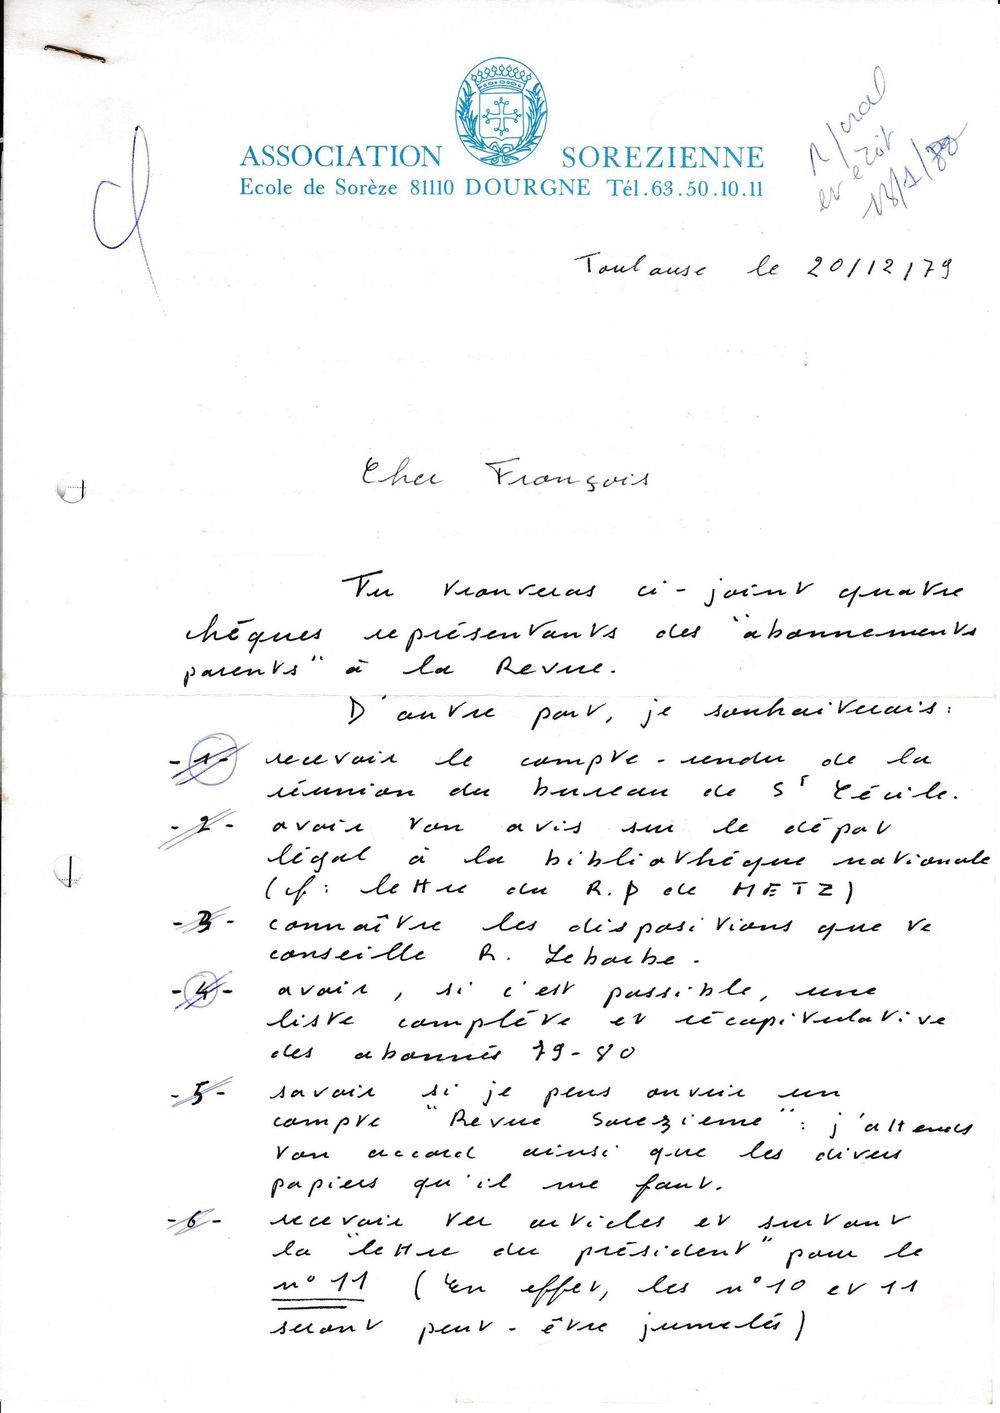 ASSOCIATION SOREZIENNE
Ecole de Sorèze 81110 DOURGNE Tél.63.50.10.11
R/oral
et écrit
13/1/80
Toulouse le 20/12/79
Cher François
Tu trouveras ci-joint quatre
chèques représentants des "abonnements
parents" à la Revue.
D'autre part, je souhaiterais :
-1- recevoir le compte-rendu de la
réunion du bureau de St Cécile.
-2- avoir ton avis sur le dépot
légal à la bibliothèque nationale
(cf : lettre du R.P de METZ)
-3- connaître les dispositions que te
conseille R. Lebarbe.
-4- avoir, si c'est possible, une
liste complète et récapitulative
des abonnés 79-80
-5- savoir si je peus ouvrir un
compte "Revue Sorezienne" : j'attends
ton accord ainsi que les divers
papiers qu'il me faut.
-6- recevoir tes articles et surtout
la "lettre du président" pour le
n° 11 (En effet, les n° 10 et 11
seront peut-être jumelés)